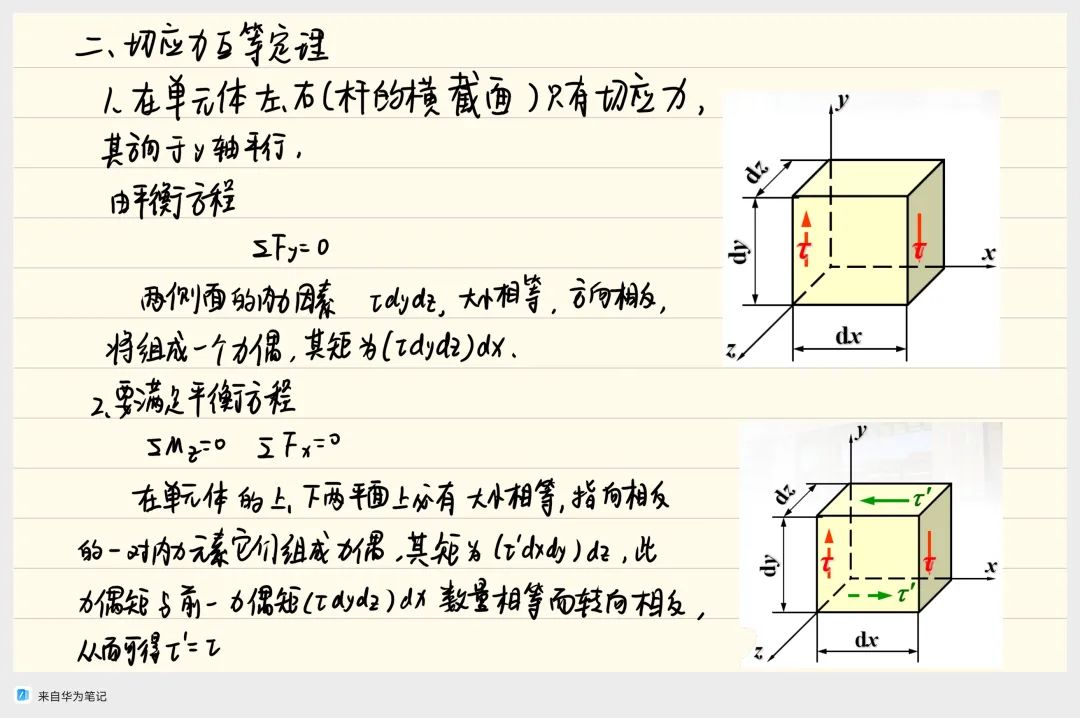 二、切应力互等定理
1、在单元体左、右(杆的横截面)只有切应力,
其方向于y轴平行.
由平衡方程
ΣFy=0
两侧面的内力因素 τdydz,大小相等,方向相反,
将组成一个力偶,其矩为(τdydz)dx.
2、要满足平衡方程
ΣMz=0 ΣFx=0
在单元体的上、下两平面上必有大小相等,指向相反
的一对内力元素它们组成力偶,其矩为(τ'dxdy)dz,此
力偶矩与前一力偶矩(τdydz)dx数量相等而转向相反,
从而可得τ'=τ
y
dz
dy
τ
τ
x
dx
z
y
dz
τ'
dy
τ
τ
x
τ'
dx
z
来自华为笔记